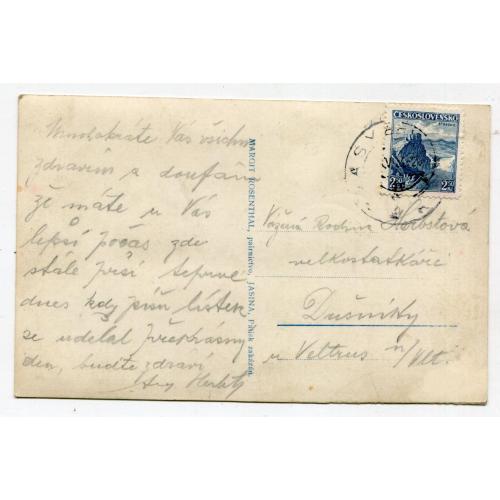 Mnohokráte Vás všechny
zdravím a doufám
že máte u Vás
lepší počas zde
stále prší teprve
dnes kdy píšu lístek
se udělal překrásný
den, buďte zdraví
MARGIT ROSENTHAL, papírnictvo, JASIŇA. Pátisk zakázán.
ČESKOSLOVENSKO
STREČNO
2.50
2.50
JASI
Vážená Rodina Herbstová
velkostatkáře
Dušníky
u Veltrus n/Vlt.